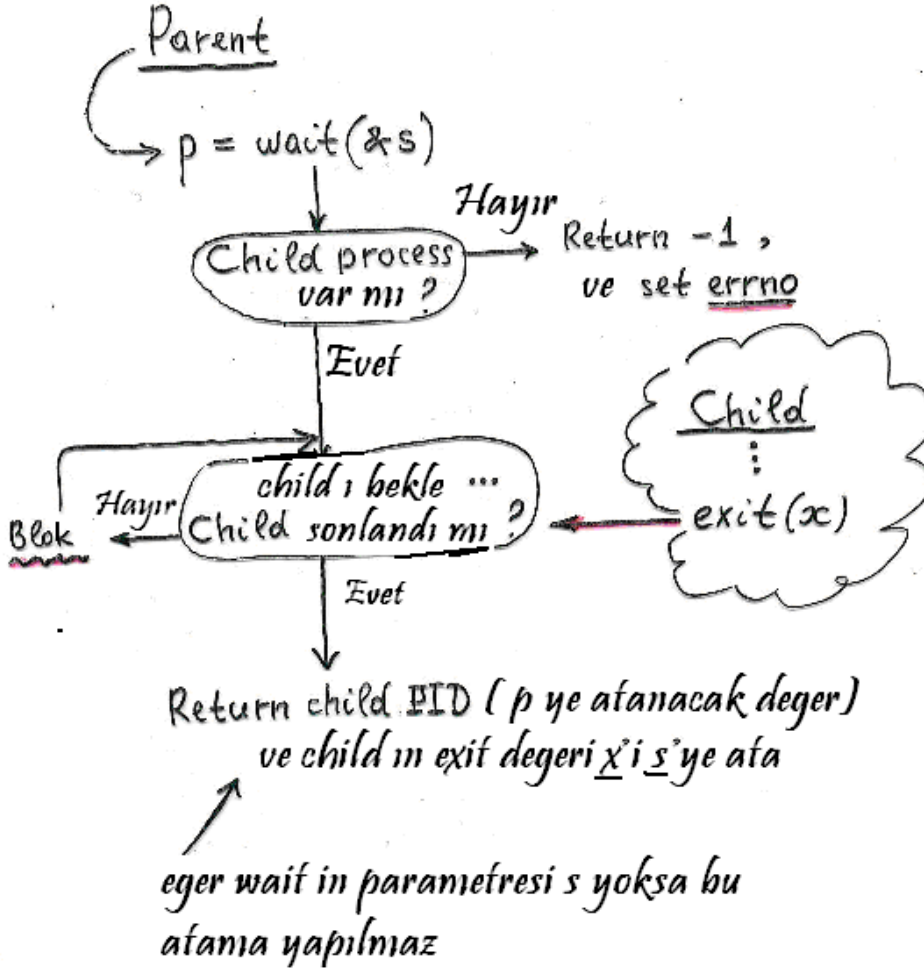 Parent
p = wait(&s)
Hayır
Child process
var mı ?
Return -1 ,
ve set errno
Evet
Child
exit(x)
child ı bekle ...
Child sonlandı mı ?
Hayır
Blok
Evet
Return child PID ( p ye atanacak deger)
ve child ın exit degeri x'i s'ye ata
eger wait in parametresi s yoksa bu
atama yapılmaz